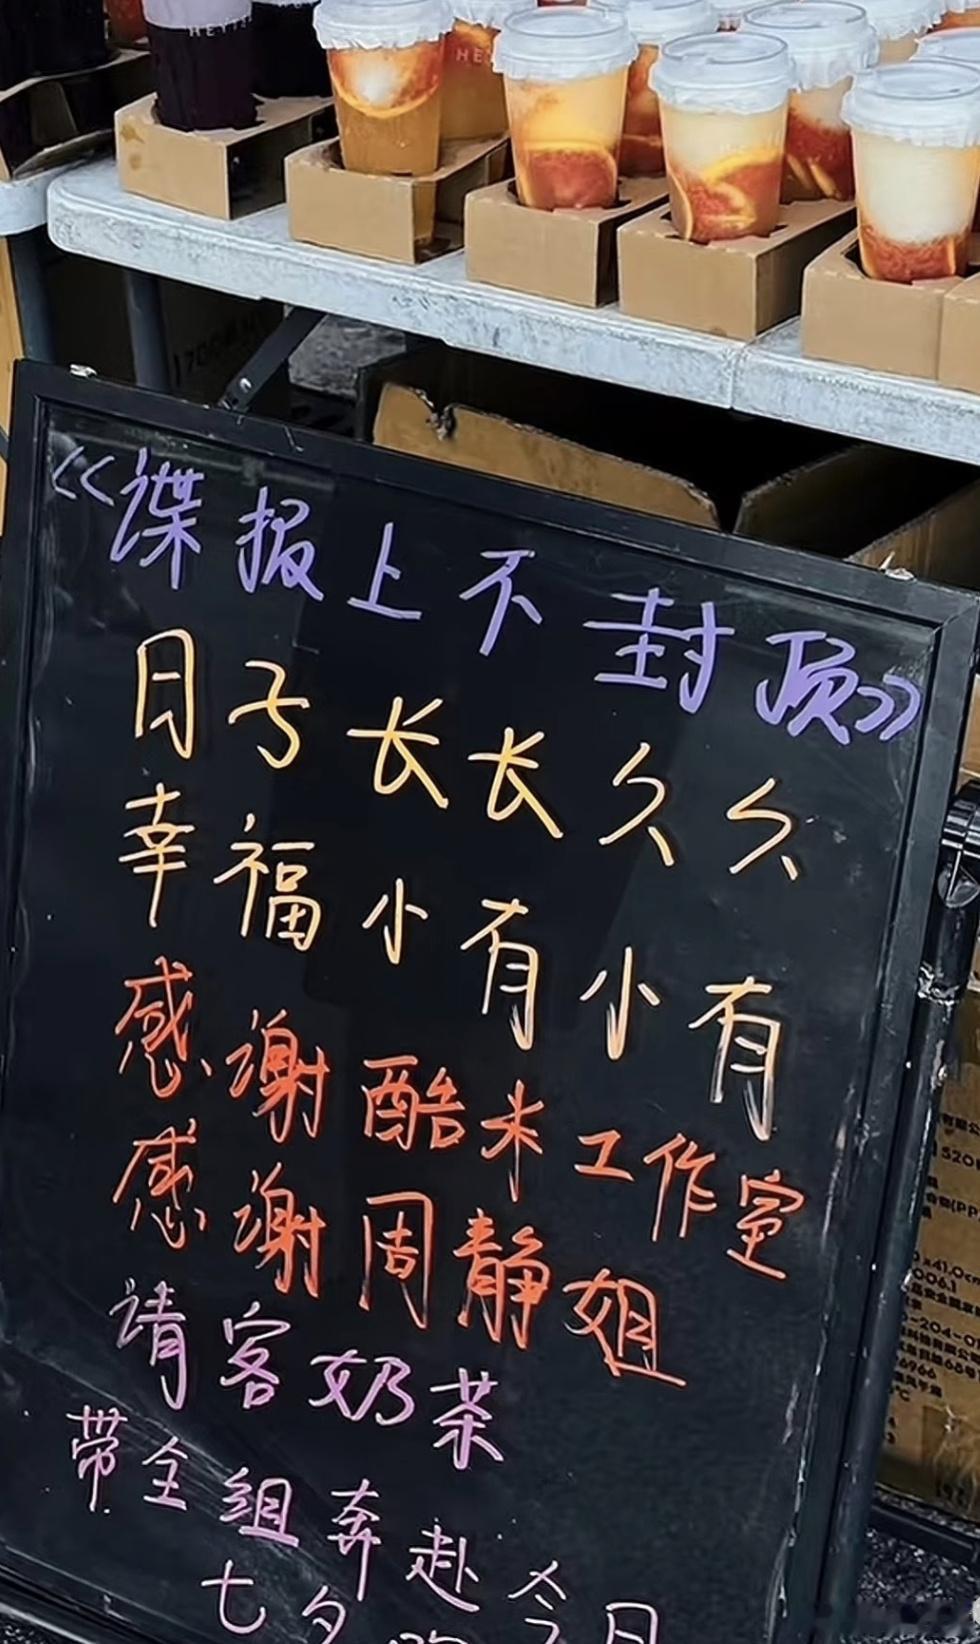 HEYT
HE
<<谍报上不封顶>>
日子长长久久
幸福小有小有
感谢酷米工作室
感谢周静姐
请客奶茶
带全组奔赴今日
七夕